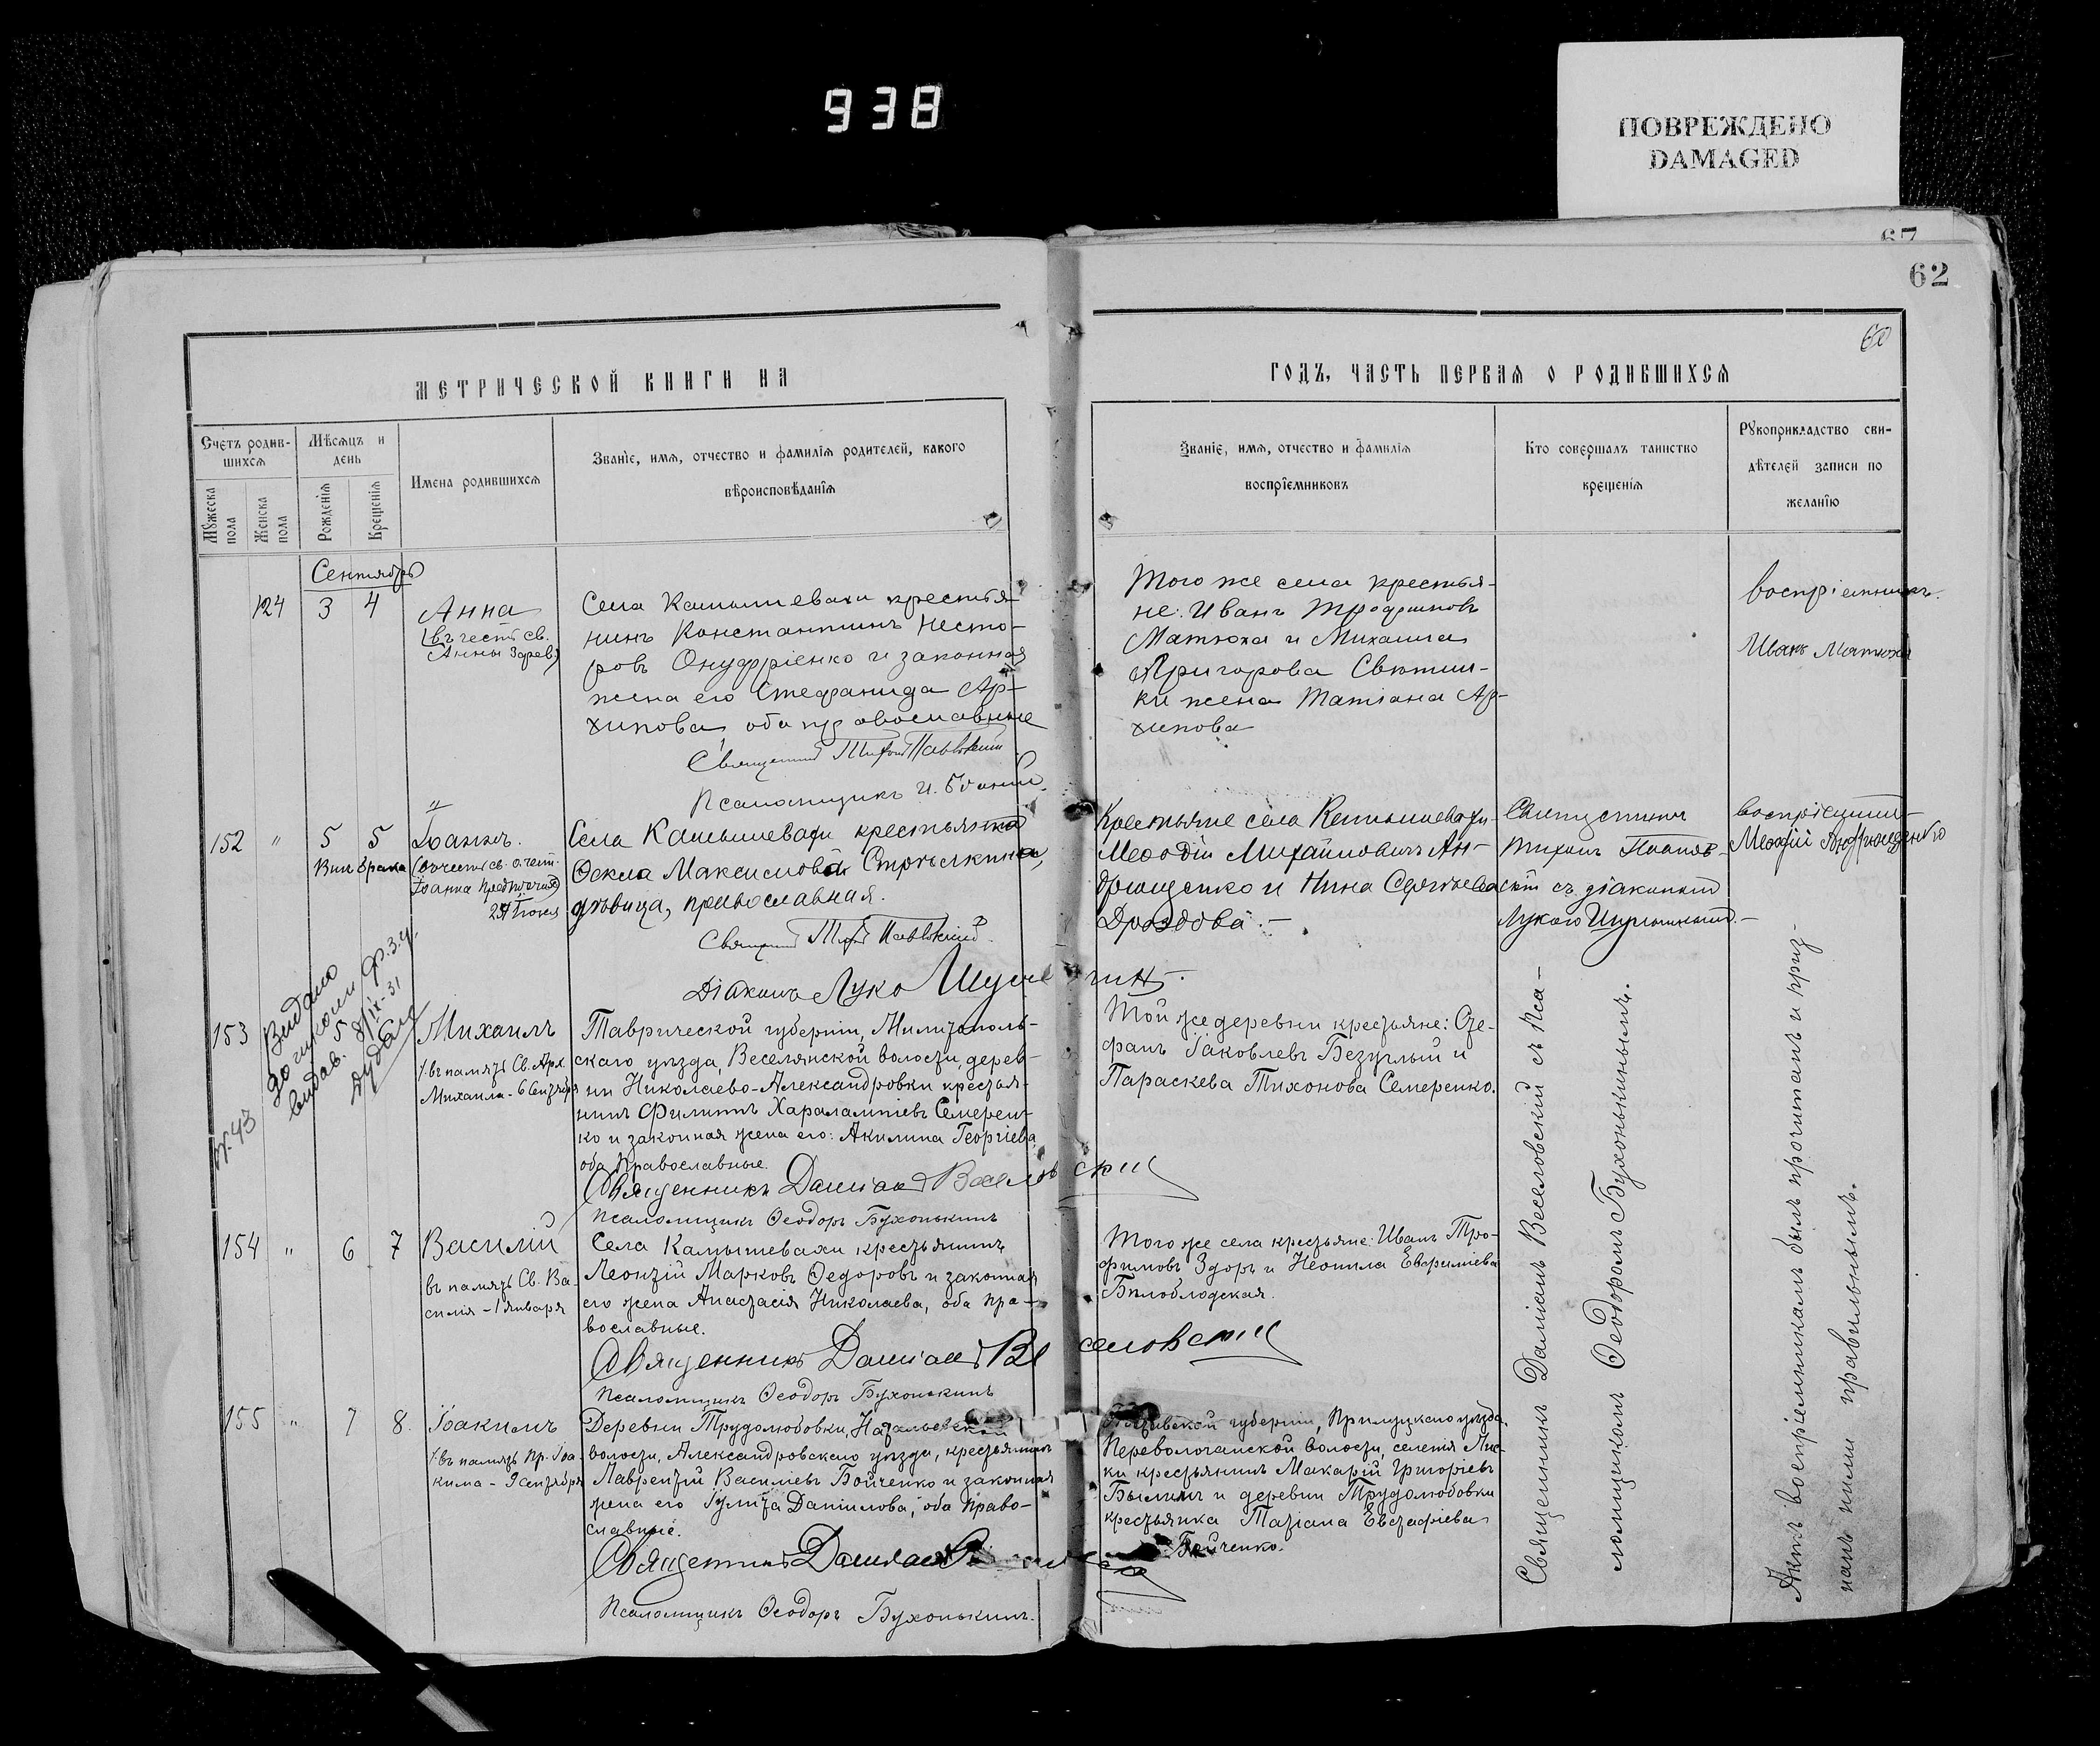 938
ПОВРЕЖДЕНО
DAMAGED
67
62
60
МЕТРИЧЕСКОЙ КНИГИ НА
ГОДЪ, ЧАСТЬ ПЕРВАЯ О РОДИВШИХСЯ
Счетъ родив-
шихся
Мужеска
пола
Женска
пола
Мѣсяцъ и
день
Рожденія
Крещенія
Имена родившихся
Званіе, имя, отчество и фамилія родителей, какого
вѣроисповѣданія
Званіе, имя, отчество и фамилія
воспріемниковъ
Кто совершалъ таинство
крещенія
Рукоприкладство сви-
дѣтелей записи по
желанію
Сентябрь
124 3 4
Анна
(въ честь св.
Анны
Села Камышевахи крестья-
нинъ Константинъ Несто-
ровъ Онуфріенко и законная
жена его Стефанида Ар-
хипова, оба православные
Священникъ
Псаломщикъ И.
Того же села крестья-
не: Иванъ Трофимовъ
Матюха и Михаила
Григорова
ки жена Татіана Ар-
хипова
воспріемникъ
Иванъ Матюха
152 " 5 5
Внѣ брака
Іоаннъ.
Іоанна Предтечи
24 Іюня
Села Камышевахи крестьянка
Ѳекла Максимова
дѣвица, православная.
Священникъ
Діаконъ Лука
Крестьяне села Камышевахи
Меѳодій Михайловичъ Ан-
дрющенко и Нина Сергѣева
Дроздова.
Священникъ
Тихонъ
съ діакономъ
Лукою
воспріемникъ
Меѳодій Андрющенко
Видано
5 8/IX-31
№ 43
153
Михаилъ
въ память Св. Арх.
Михаила - 6 Сентября
Таврической губерніи, Мелитополь-
скаго уѣзда, Веселянской волости, дерев-
ни Николаево-Александровки крестья-
нинъ Филиппъ Харалампіевъ Семерен-
ко и законная жена его: Акилина Георгіева
оба Православные.
Священникъ Даміанъ Веселовскій
Псаломщикъ Ѳеодоръ Бухонькинъ
Той же деревни крестьяне: Сте-
фанъ Іаковлевъ Безуглый и
Параскева Тихонова Семеренко.
154 " 6 7
Василій
въ память Св. Ва-
силія - 1 Января
Села Камышевахи крестьянинъ
Леонтій Марковъ Ѳедоровъ и законная
его жена Анастасія Николаева, оба пра-
вославные.
Священникъ Даміанъ Веселовскій
Псаломщикъ Ѳеодоръ Бухонькинъ
Того же села крестьяне: Иванъ Тро-
фимовъ Здоръ и Неонила Евфиміева
Бѣлоблодская.
155 " 7 8.
Іоакимъ
въ память Пр. Іоа-
кима - 9 Сентября
Деревни Трудолюбовки, Натальевской
волости, Александровскаго уѣзда, крестьянинъ
Лаврентій Василіевъ Бойченко и законная
жена его Іулита Даніилова, оба Право-
славные.
Священникъ Даміанъ
Псаломщикъ Ѳеодоръ Бухонькинъ.
губерніи, Прилуцкаго уѣзда,
Переволочанской волости, селенія
ки крестьянинъ Макарій Григоріевъ
и деревни Трудолюбовки
крестьянка Татіана Евстафіева
Бойченко.
Священникъ Даміанъ Веселовскій съ Пса-
ломщикомъ Ѳеодоромъ Бухонькинымъ.
Актъ воспріемникамъ былъ прочитанъ и приз-
нанъ ними правильнымъ.